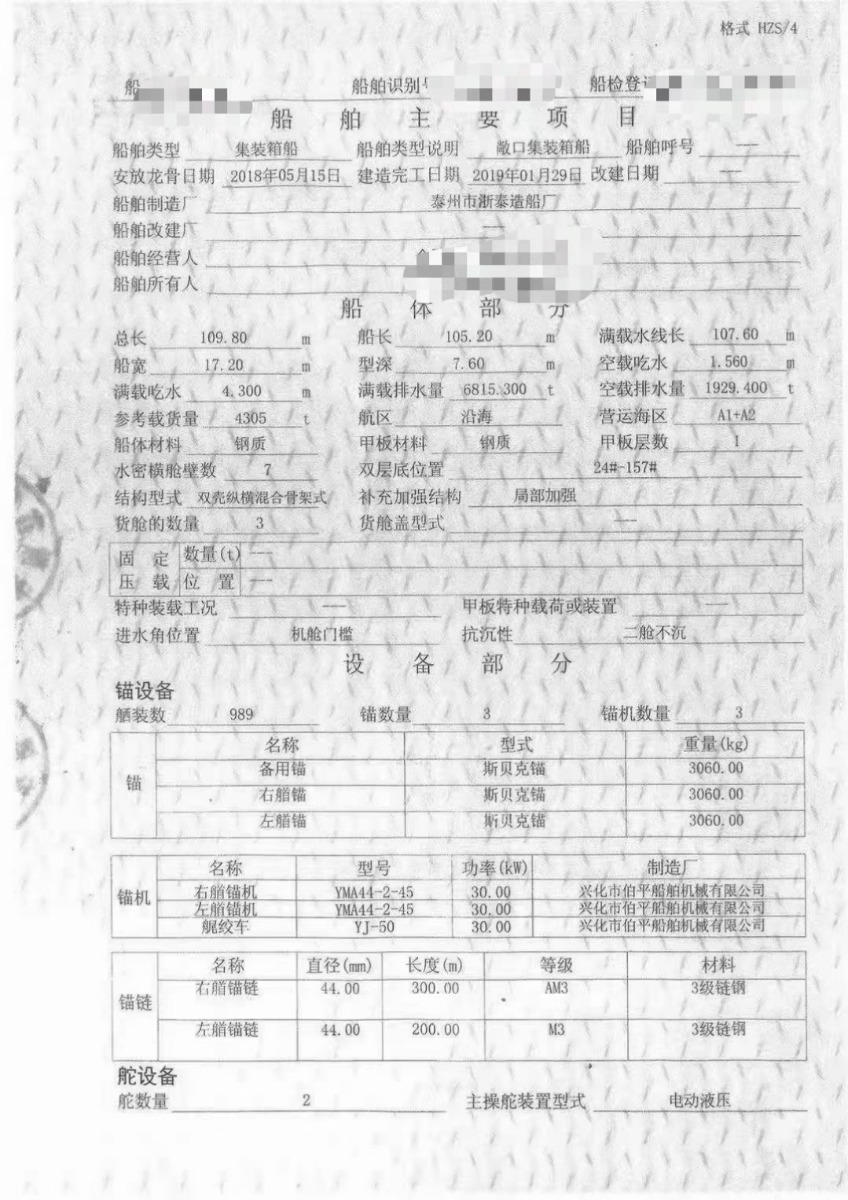 格式 HZS/4
船 船舶识别号 船检登记
船舶主要项目
船舶类型 集装箱船 船舶类型说明 敞口集装箱船 船舶呼号 ---
安放龙骨日期 2018年05月15日 建造完工日期 2019年01月29日 改建日期 ---
船舶制造厂 泰州市浙泰造船厂
船舶改建厂 ---
船舶经营人
船舶所有人
船体部分
总长 109.80 m 船长 105.20 m 满载水线长 107.60 m
船宽 17.20 m 型深 7.60 m 空载吃水 1.560 m
满载吃水 4.300 m 满载排水量 6815.300 t 空载排水量 1929.400 t
参考载货量 4305 t 航区 沿海 营运海区 A1+A2
船体材料 钢质 甲板材料 钢质 甲板层数 1
水密横舱壁数 7 双层底位置 24#-157#
结构型式 双壳纵横混合骨架式 补充加强结构 局部加强
货舱的数量 3 货舱盖型式 ---
固定 数量(t) ---
压载 位置 ---
特种装载工况 --- 甲板特种载荷或装置 ---
进水角位置 机舱门槛 抗沉性 二舱不沉
设备部分
锚设备
舾装数 989 锚数量 3 锚机数量 3
名称 型式 重量(kg)
锚 备用锚 斯贝克锚 3060.00
右艏锚 斯贝克锚 3060.00
左艏锚 斯贝克锚 3060.00
名称 型号 功率(kW) 制造厂
锚机 右艏锚机 YMA44-2-45 30.00 兴化市伯平船舶机械有限公司
左艏锚机 YMA44-2-45 30.00 兴化市伯平船舶机械有限公司
艉绞车 YJ-50 30.00 兴化市伯平船舶机械有限公司
名称 直径(mm) 长度(m) 等级 材料
锚链 右艏锚链 44.00 300.00 AM3 3级链钢
左艏锚链 44.00 200.00 M3 3级链钢
舵设备
舵数量 2 主操舵装置型式 电动液压